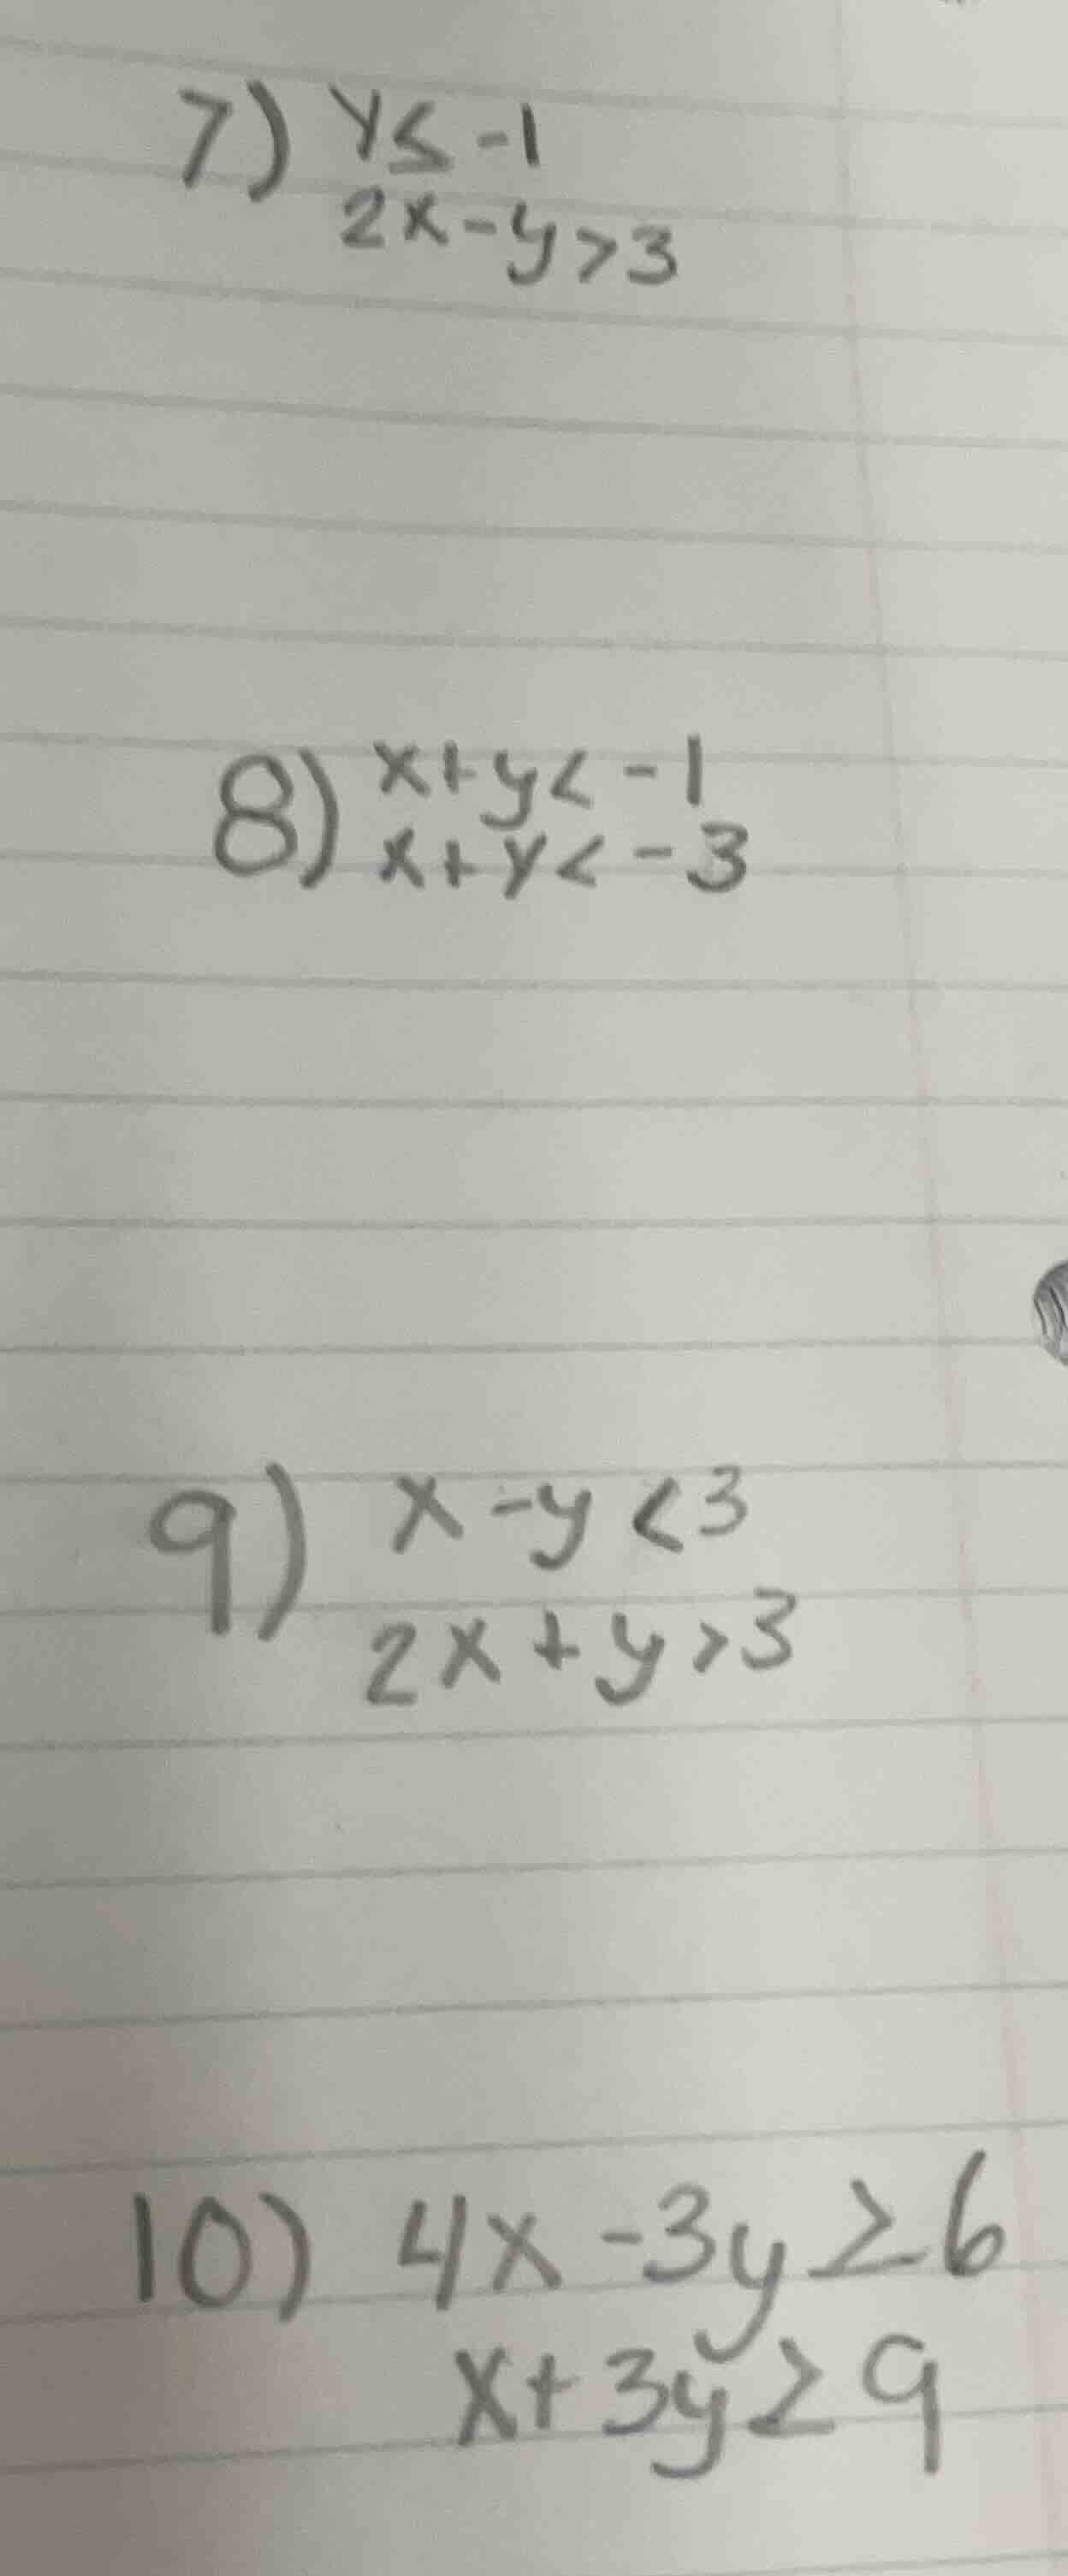 7) y ≤ -1
2x - y > 3
8) x + y < -1
x + y < -3
9) x - y < 3
2x + y > 3
10) 4x - 3y ≥ 6
x + 3y ≥ 9